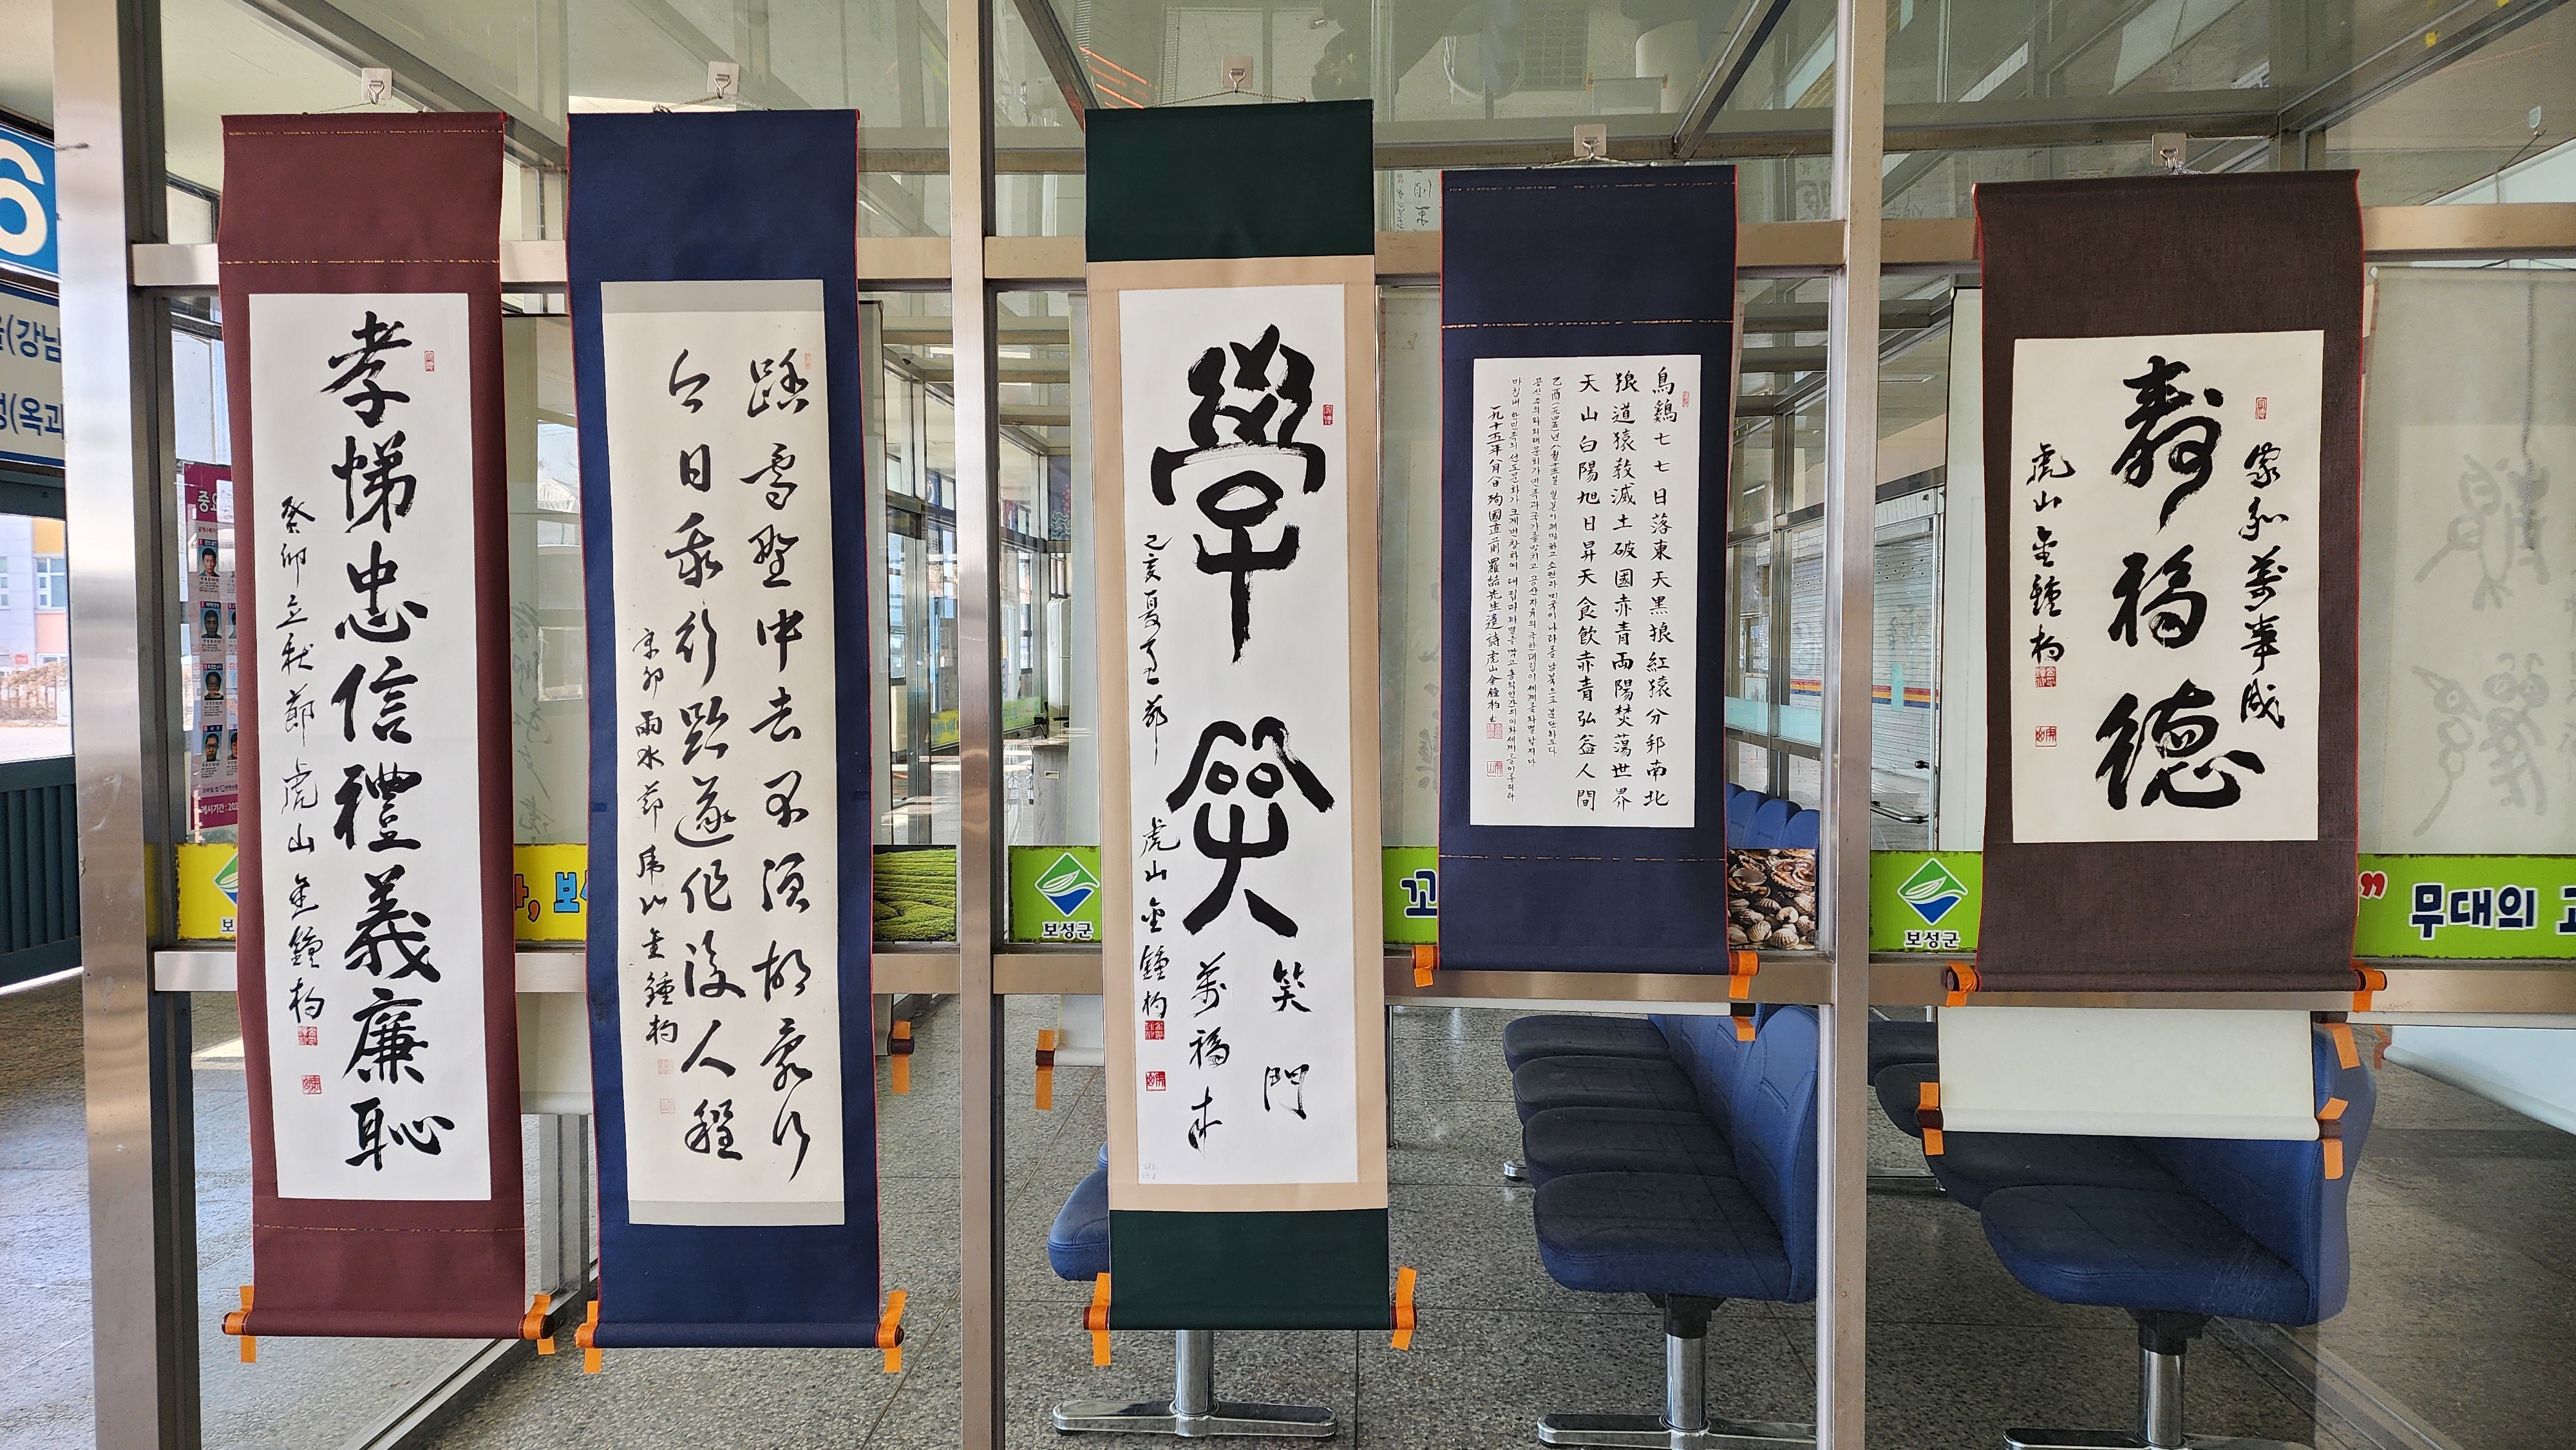 6
(강남
(옥과
孝悌忠信禮義廉恥
癸卯立秋節 虎山 金鐘杓
踏雪野中去不須胡亂行
今日我行跡遂作後人程
癸卯雨水節 虎山 金鐘杓
學笑
笑門
萬福來
己亥夏至節
虎山 金鐘杓
鳥鷄七七日落東天黑狼紅猿分邦南北
狼道猿敎滅土破國赤青兩陽焚蕩世界
天山白陽旭日昇天食飮赤青弘益人間
壽福德
家和萬事成
虎山 金鐘杓
보성군
보성군
무대의